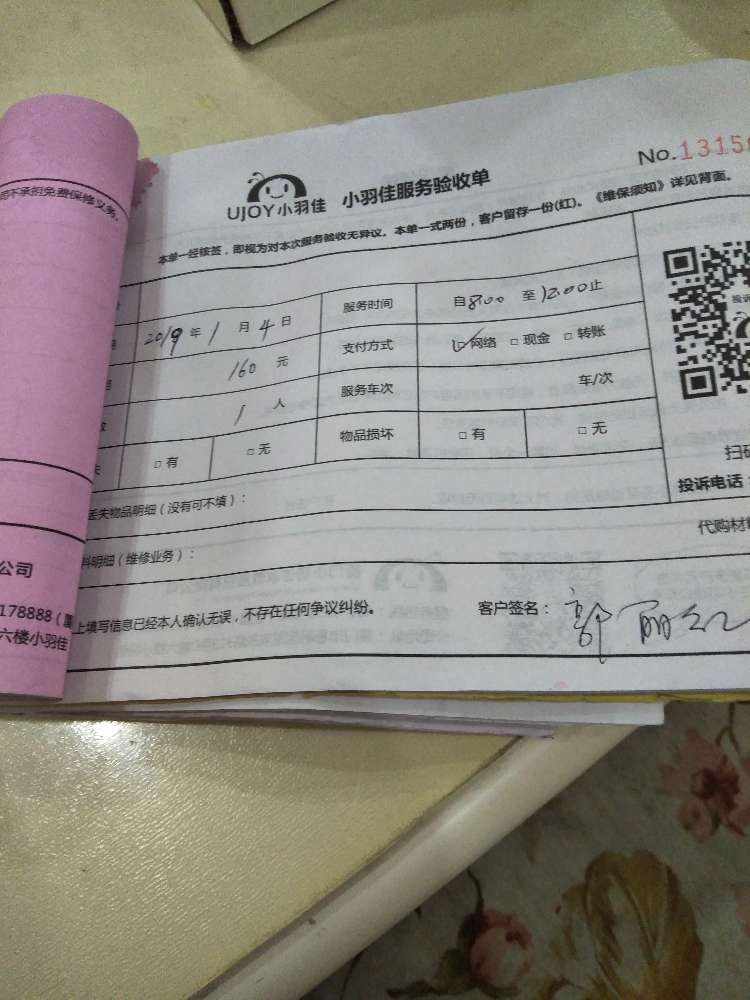 不承担免费保修义务。
No.1315
UJOY小羽佳 小羽佳服务验收单
本单一经核签，即视为对本次服务验收无异议。本单一式两份，客户留存一份(红)。《维保须知》详见背面。
2019年1月4日 服务时间 自8:00 至12:00止
160元 支付方式 ☑网络 □现金 □转账
1人 服务车次 车/次
□有 □无 物品损坏 □有 □无
扫码
投诉电话：
丢失物品明细（没有可不填）：
代购材料
料明细（维修业务）：
上填写信息已经本人确认无误，不存在任何争议纠纷。 客户签名：郭丽红
公司
178888（厦
六楼小羽佳